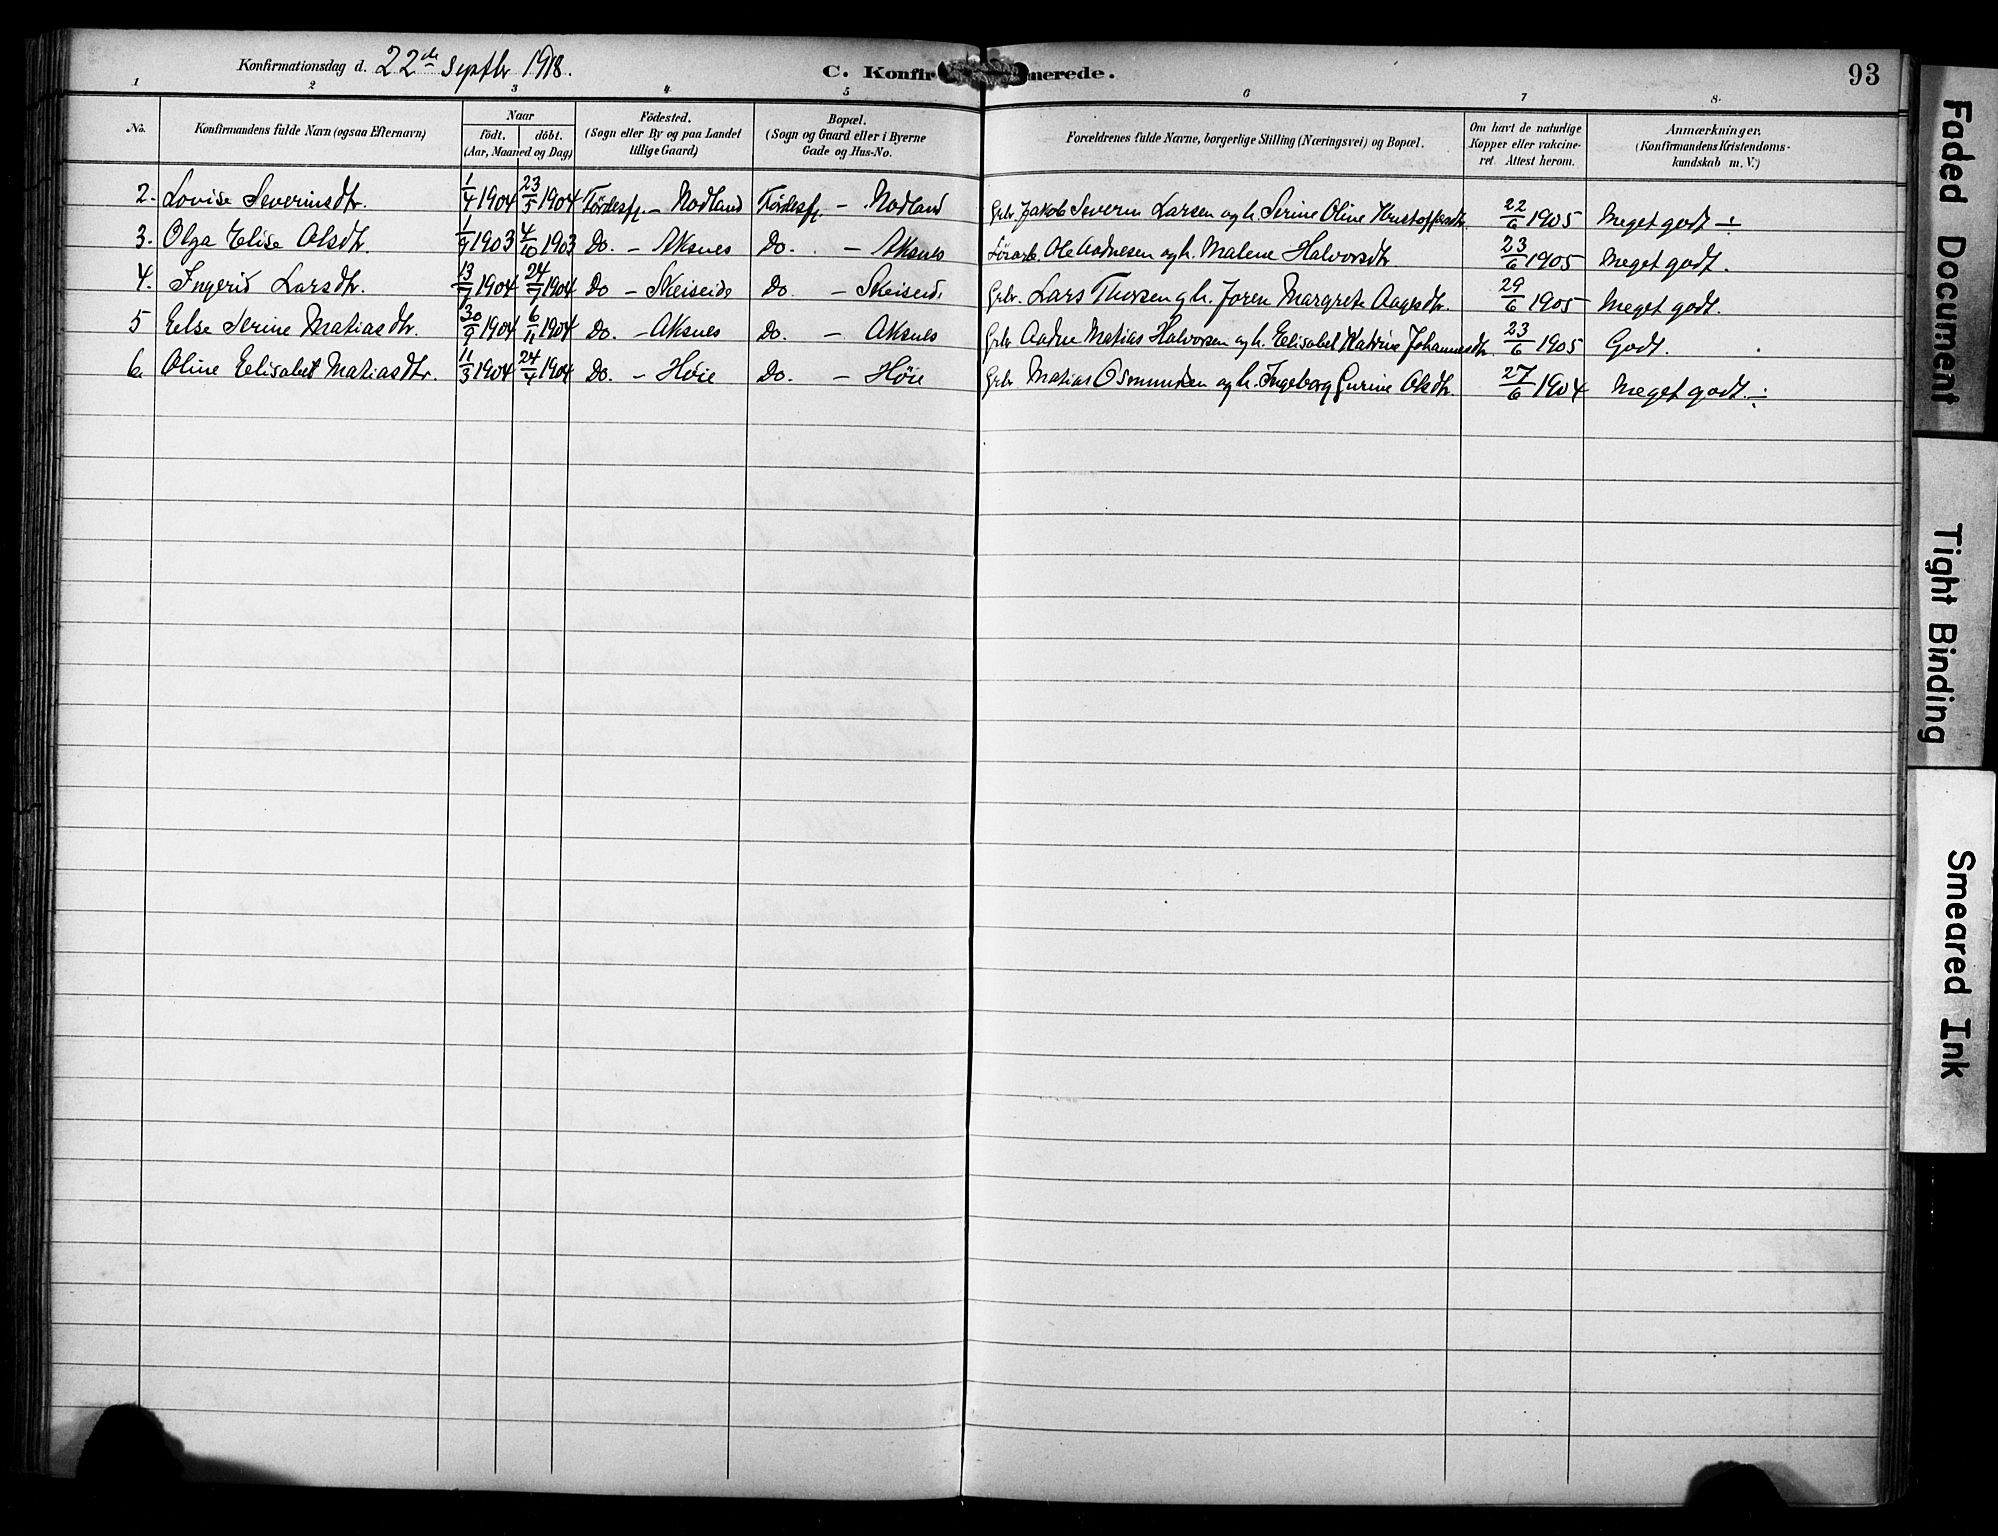 Konfirmationsdag d. 22de Septbr 1918.
C. Konfirmerede.
93
1 2 3 4 5 6 7 8.
No.
Konfirmandens fulde Navn (ogsaa Efternavn)
Naar
födt. döbt.
(Aar, Maaned og Dag)
Födested.
(Sogn eller By og paa Landet
tillige Gaard)
Bopæl.
(Sogn og Gaard eller i Byerne
Gade og Hus-No.
Forældrenes fulde Navne, borgerlige Stilling (Næringsvei) og Bopæl.
Om havt de naturlige
Kopper eller vakcine-
ret. Attest herom.
Anmærkninger.
(Konfirmandens Kristendoms-
kundskab m. V.)
2. Lovise Severinsdtr. 1/4 1904 23/5 1904 Førdesfj. – Nodland Førdesfj. – Nodland Grbr. Jakob Severin Larsen og h. Serine Oline Kristoffersdtr. 22/6 1905 Meget godt ÷
3. Olga Elise Olsdtr. 1/9 1903 4/10 1903 Do. – Aksnes Do. – Aksnes Ole Aadnesen og h. Malene Halvorsdtr. 23/6 1905 Meget godt.
4. Ingerid Larsdtr. 13/7 1904 24/7 1904 Do – Skeiseid Do. – Skeiseid Grbr. Lars Thorsen og h. Joren Margrete Aagesdtr. 29/6 1905 Meget godt.
5 Else Serine Matiasdtr. 30/9 1904 6/11 1904 Do. – Aksnes Do. – Aksnes Grbr Aadne Matias Halvorsen og h. Elisabet Katrine Johannesdtr. 23/6 1905 Godt.
6. Oline Elisabet Matiasdtr. 11/3 1904 24/4 1904 Do. – Høie Do. – Höie Grbr Matias Osmundsen og h. Ingeborg Gurine Olsdtr. 27/6 1904 Meget godt. ÷
Faded Document
Tight Binding
Smeared Ink